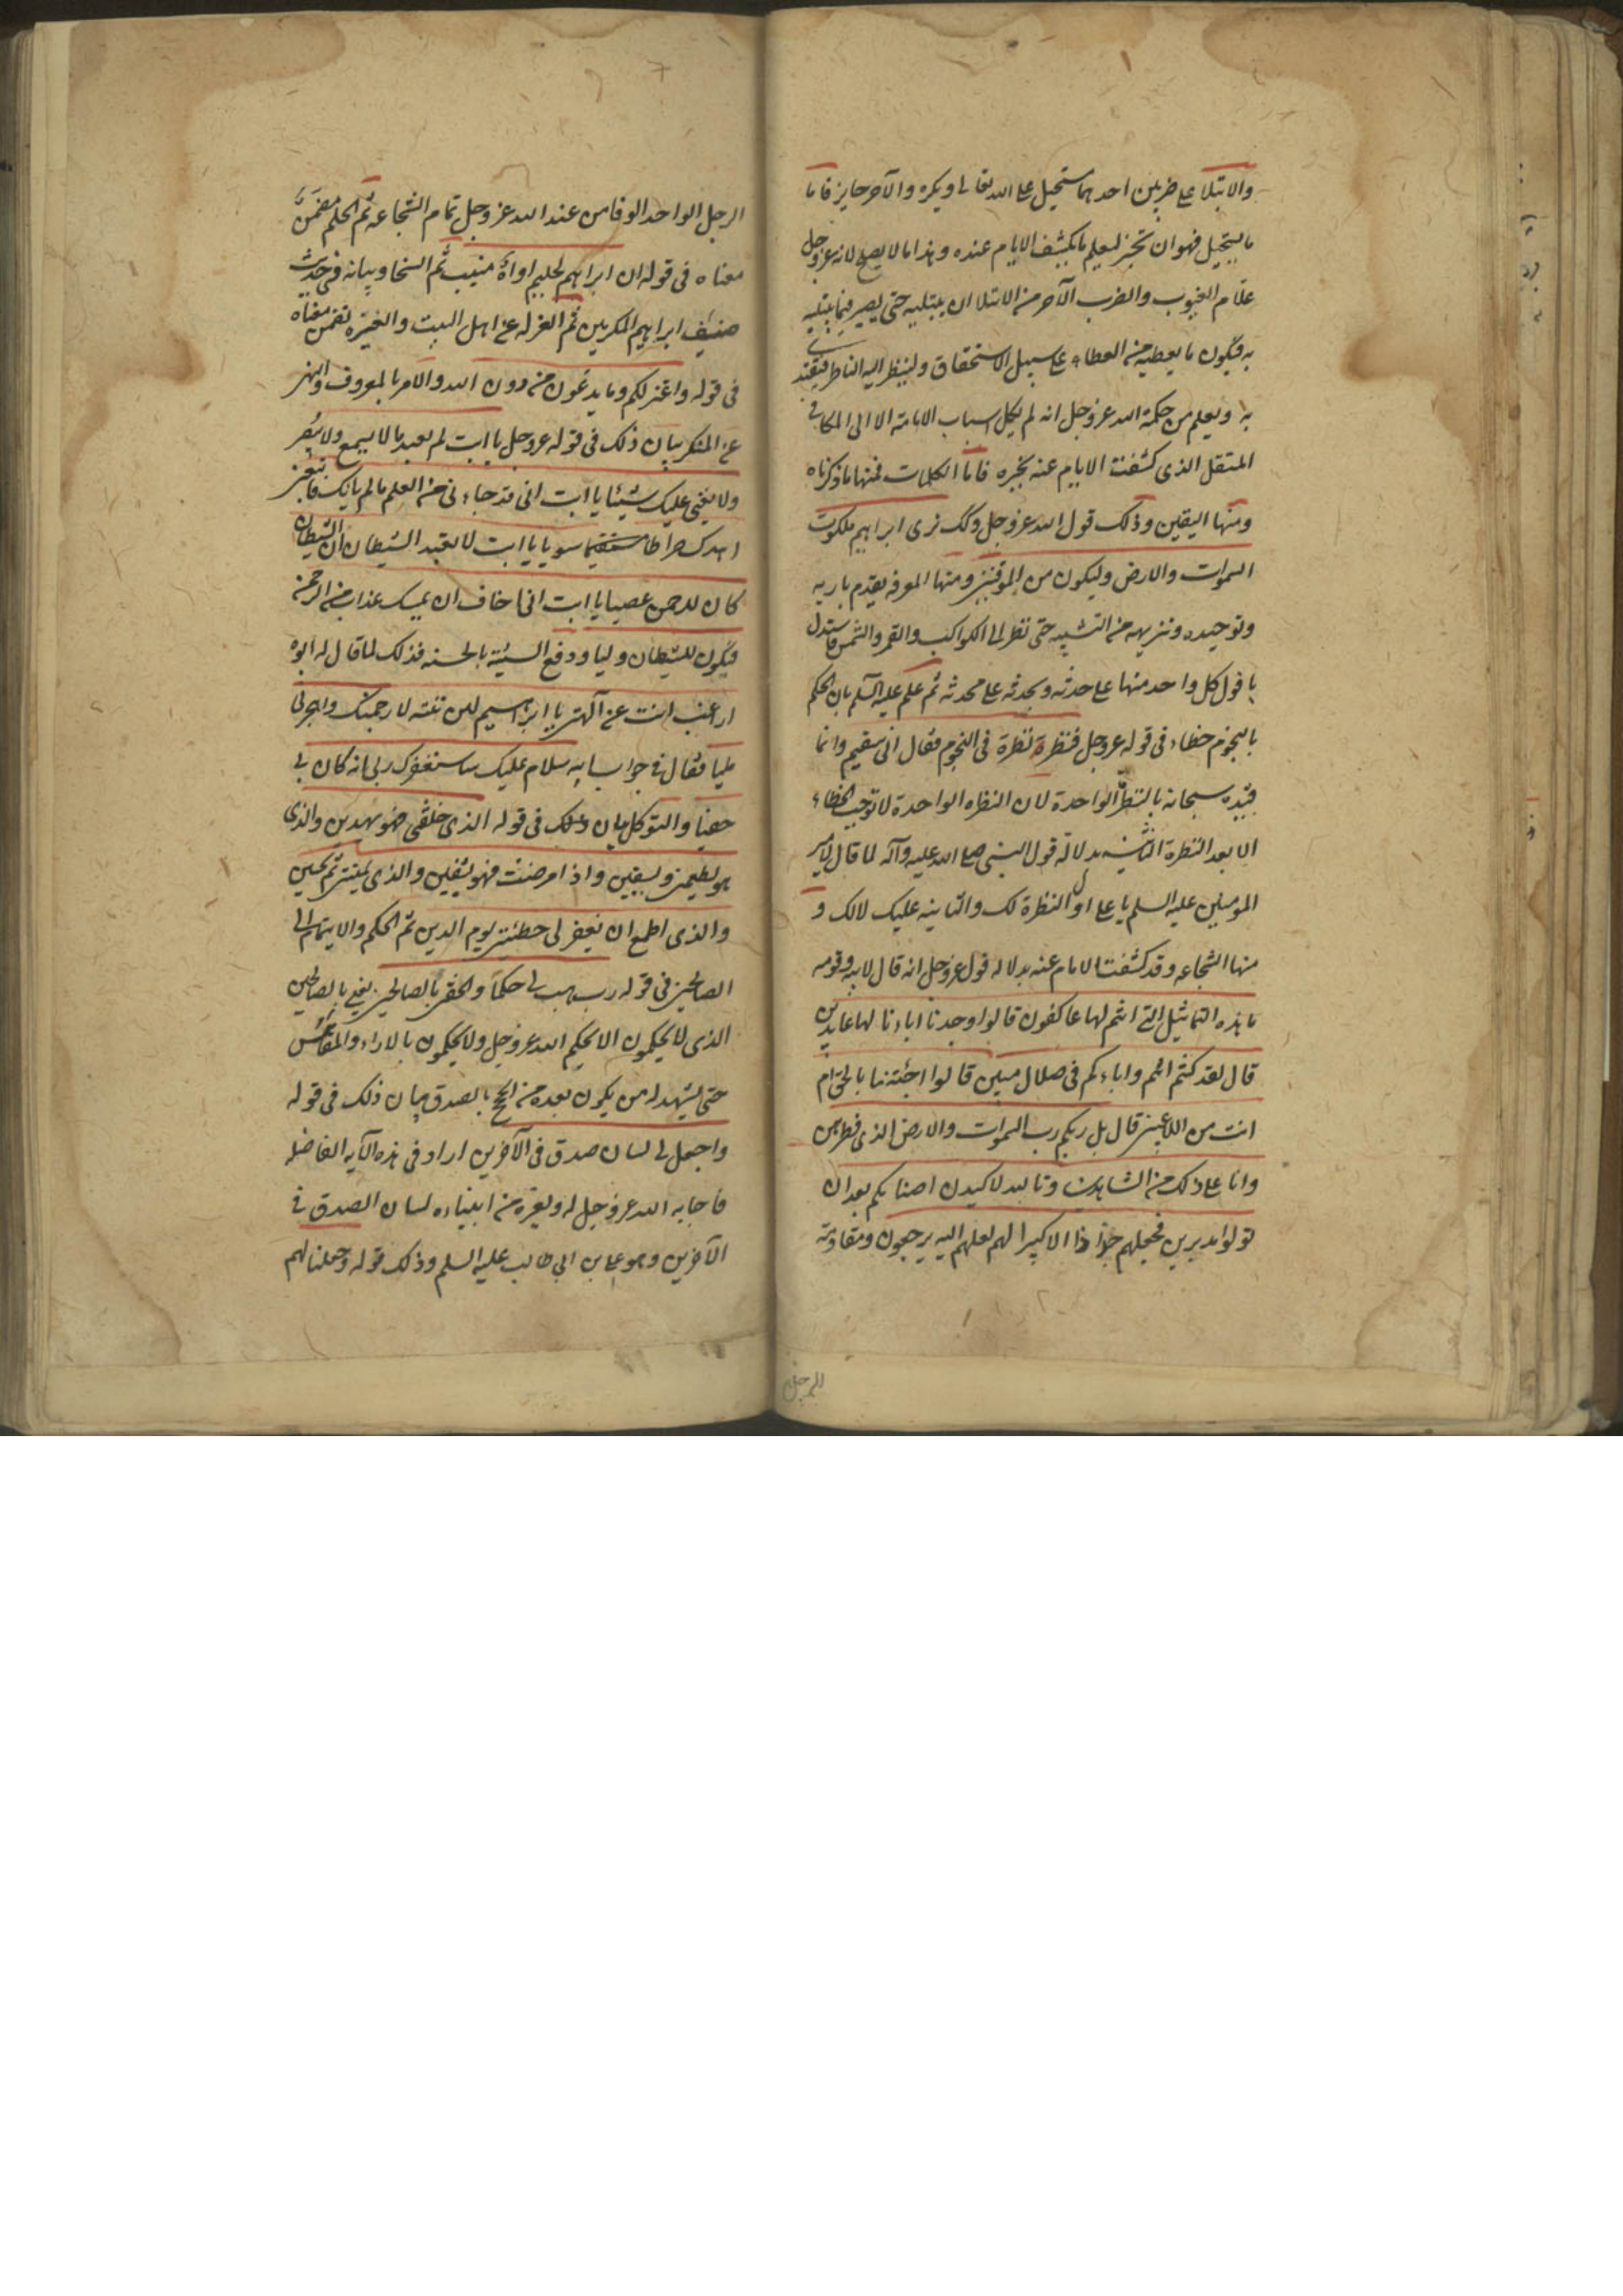 والابتلا علی ضربین احدهما مستحیل علی الله تعالی ویکره والآخر جایز فاما
ما یستحیل فهو ان تختبر لیعلم ما یکشف الایام عنده وهذا ما لا یصح لانه عز وجل
علّام الغیوب والضرب الآخر من الابتلا ان یبتلیه حتی یصبر فیما یبتلیه
به فیکون ما یعطیه من العطاء علی سبیل الاستحقاق ولینظر الیه الناظر فیقتدی
به ویعلم من حکمة الله عز وجل انه لم یکل اسباب الامامة الا الی الکافی
المستقل الذی کشفت الایام عنه بخبره فاما الکلمات فمنها ما ذکرناه
ومنها الیقین وذلک قول الله عز وجل وکک نری ابراهیم ملکوت
السموات والارض ولیکون من الموقنین ومنها المعرفه بقدم باریه
وتوحیده وتنزیهه من التشبیه حتی نظر الی الکواکب والقمر والشمس فاستدل
بافول کل واحد منها علی حدثه وبحدثه علی محدثه ثم علم علیه السلم بان الحکم
بالنجوم خطاء فی قوله عز وجل فنظر نظرة فی النجوم فقال انی سقیم وانما
قیده سبحانه بالنظرة الواحدة لان النظره الواحدة لا توجب الخطاء
الا بعد النظرة الثانیه بدلالة قول النبی صلی الله علیه وآله لما قال لامیر
المومنین علیه السلم یا علی اول النظرة لک والثانیه علیک لا لک و
منها الشجاعه وقد کشفت الایام عنه بدلاله قول عز وجل انه قال لابیه وقومه
ما هذه التماثیل التی انتم لها عاکفون قالوا وجدنا اباءنا لها عابدین
قال لقد کنتم انتم واباءکم فی ضلال مبین قالوا اجئتنا بالحق ام
انت من اللاعبین قال بل ربکم رب السموات والارض الذی فطرهن
وانا علی ذلکم من الشاهدین وتالله لاکیدن اصنامکم بعد ان
تولوا مدبرین فجعلهم جذاذا الا کبیرا لهم لعلهم الیه یرجعون ومقاومة
الرجل
الرجل الواحد الوفا من عند الله عز وجل تمام الشجاعه ثم الحلم مضمن
معناه فی قوله ان ابراهیم لحلیم اواه منیب ثم السخا وبیانه فی حدیث
ضیف ابراهیم المکرمین ثم العزله عن اهل البیت والعشیرة تضمن معناه
فی قوله واعتزلکم وما یدعون من دون الله والامر بالمعروف والنهی
عن المنکر بیان ذلک فی قوله عز وجل یا ابت لم تعبد ما لا یسمع ولا یبصر
ولا یغنی علیک شیئا یا ابت انی قد جاءنی من العلم ما لم یاتک فاتبعنی
اهدک صراطا مستقیما سویا یا ابت لا تعبد الشیطان ان الشیطان
کان للرحمن عصیا یا ابت انی اخاف ان یمسک عذاب من الرحمن
فیکون للشیطان ولیا ودفع السیئة بالحسنه فذلک لما قال له ابوه
اراغب انت عن آلهتی یا ابراهیم لئن لم تنته لارجمنک واهجرنی
ملیا فقال فی جواب ابیه سلام علیک ساستغفر لک ربی انه کان بی
حفیا والتوکل بیان ذلک فی قوله الذی خلقنی فهو یهدین والذی
هو یطعمنی ویسقین واذا مرضت فهو یشفین والذی یمیتنی ثم یحیین
والذی اطمع ان یغفر لی خطیئتی یوم الدین ثم الحکم والانتماء الی
الصالحین فی قوله رب هب لی حکما والحقنی بالصالحین یعنی بالصالحین
الذی لا یحکمون الا بحکم الله عز وجل ولا یحکمون بالاراء والمقائیس
حتی یشهد له من یکون بعده من الحجج بالصدق بیان ذلک فی قوله
واجعل لی لسان صدق فی الآخرین اراد فی هذه الآیه الفاضله
فاجابه الله عز وجل له ولغیره من انبیاءه لسان الصدق فی
الآخرین وهو علی بن ابی طالب علیه السلم وذلک قوله وجعلنا لهم